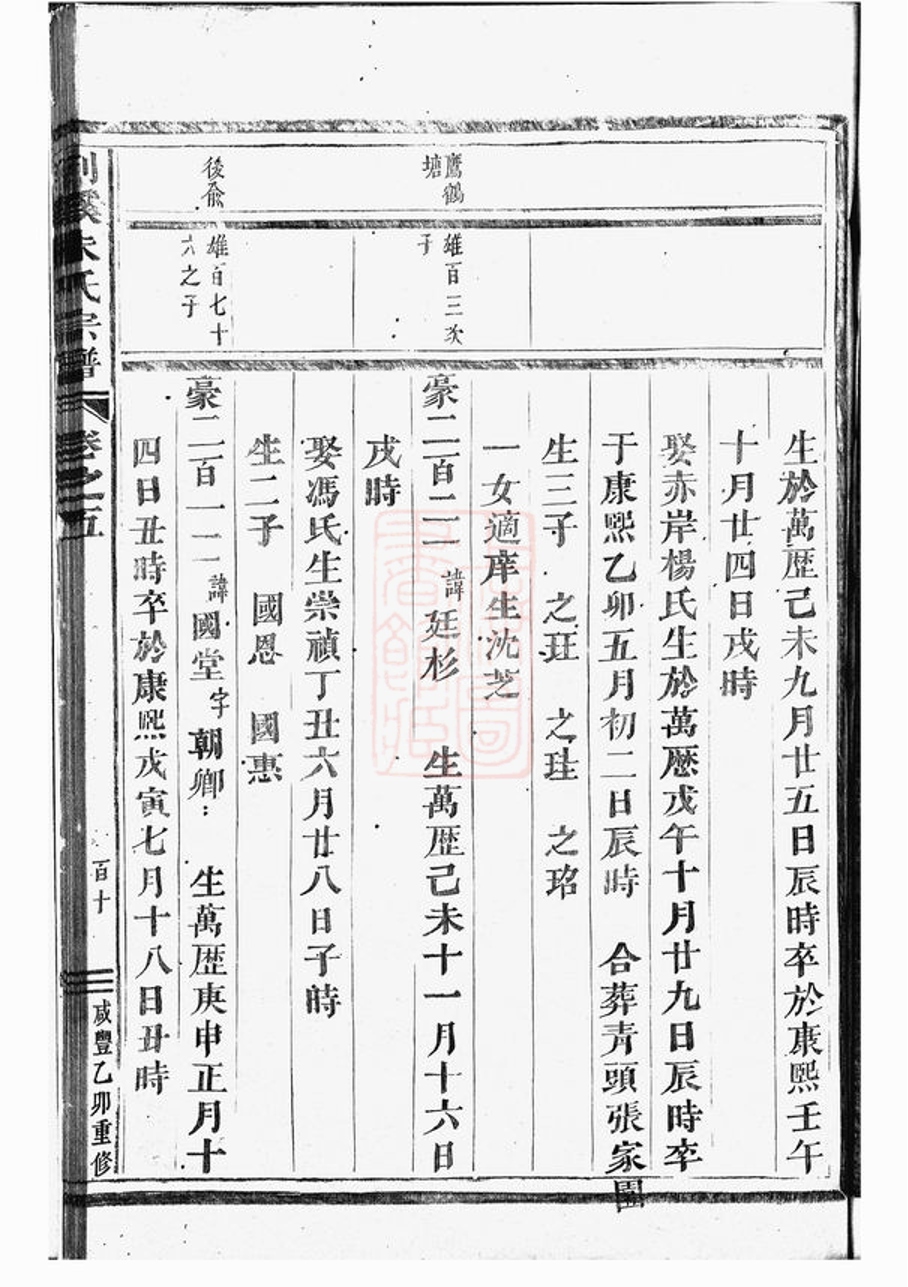 生於萬歷己未九月廿五日辰時卒於康熙壬午
十月廿四日戌時
娶赤岸楊氏生於萬歷戊午十月廿九日辰時卒
于康熙乙卯五月初二日辰時 合葬青頭張家園
生三子 之玨 之珪 之珆
一女適庠生沈芝
鷹鶴塘
雄百三次子
豪二百二二 諱廷杉 生萬歷己未十一月十六日
戌時
娶馮氏生崇禎丁丑六月廿八日子時
生二子 國恩 國惠
後俞
雄百七十六之子
豪二百一二 諱國堂 字朝卿 生萬歷庚申正月十
四日丑時卒於康熙戊寅七月十八日丑時
宗譜
卷之五
百十
咸豐乙卯重修